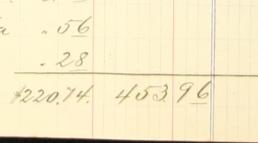 . 56
. 28
$220.74. 453.96